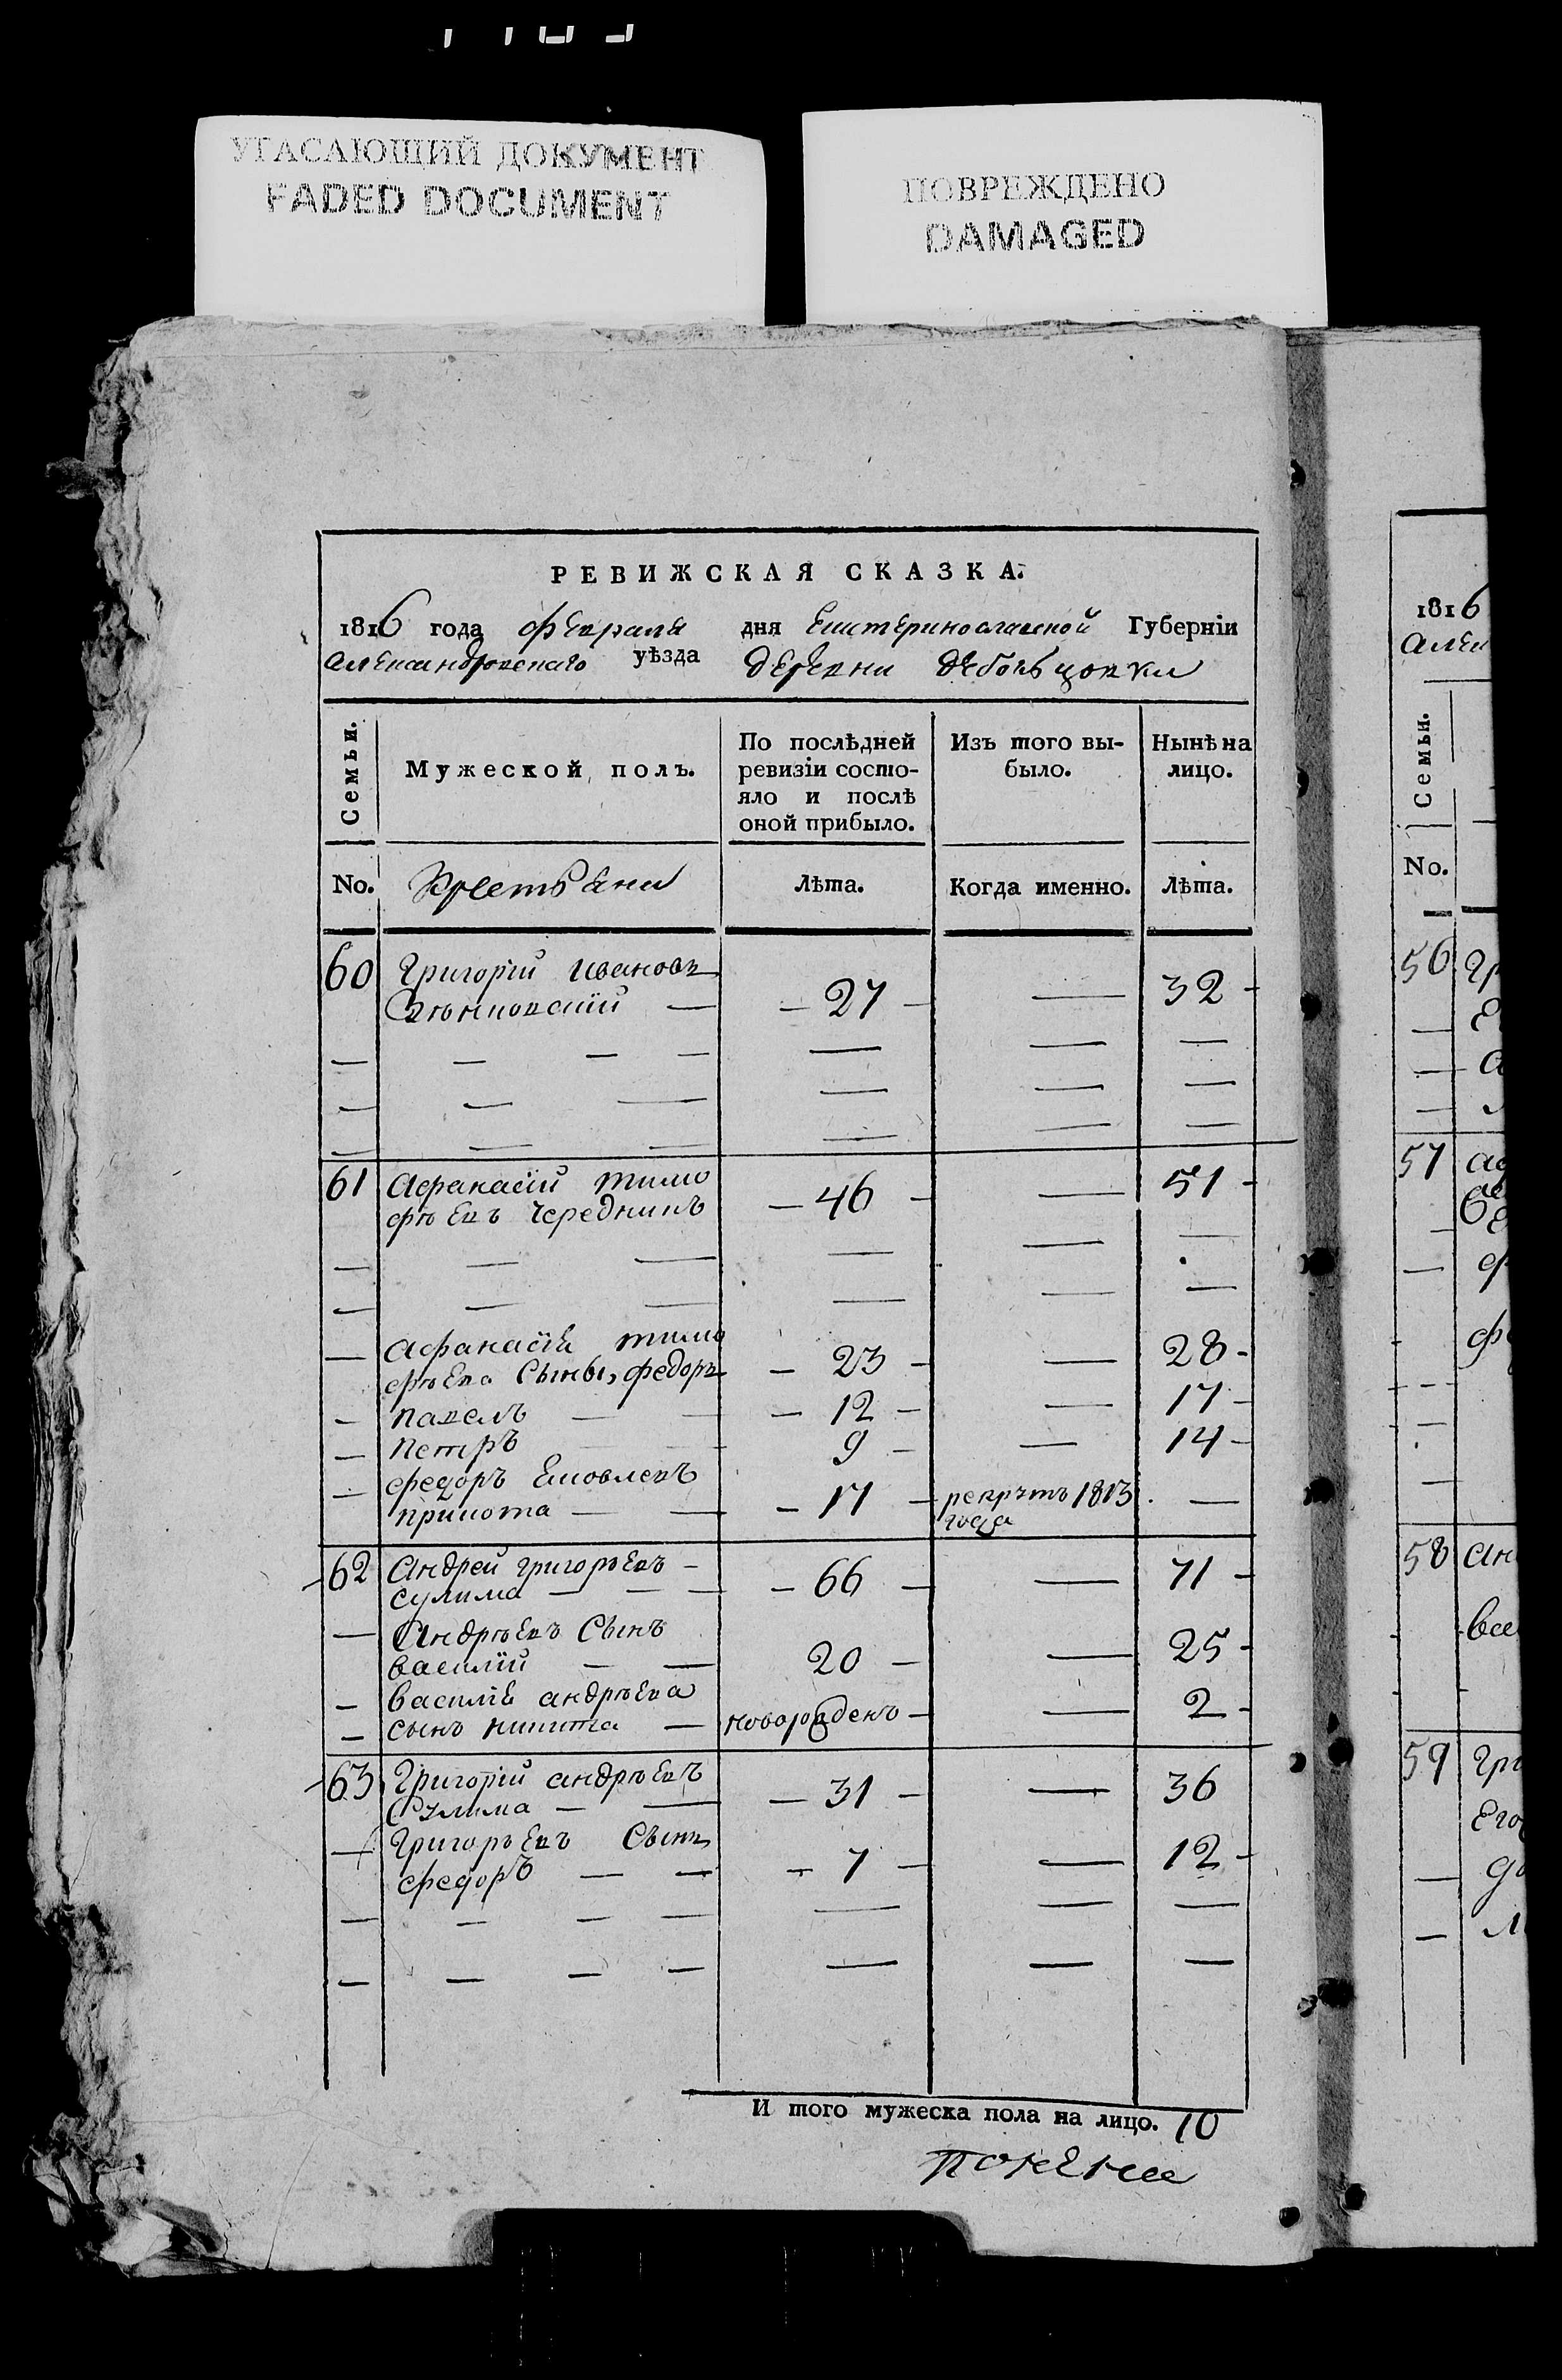 УГАСАЮЩИЙ ДОКУМЕНТ
FADED DOCUMENT
ПОВРЕЖДЕНО
DAMAGED
РЕВИЖСКАЯ СКАЗКА.
1816 года февраля дня Екатеринославской Губерніи
Александровскаго уѣзда деревни
Семьи. Мужеской полъ. По послѣдней ревизіи состо- Изъ того вы- Нынѣ на
яло и послѣ оной прибыло. было. лицо.
No. Крестьяни Лѣта. Когда именно. Лѣта.
60 Григорій Ивановъ
— 27 — — 32 —
61 Афанасій тимо
фѣевъ Чередникъ — 46 — — 51 —
— Афанасія тимо
фѣева Сыны, федоръ — 23 — — 28 —
— павелъ — — — 12 — — 17 —
— петръ 9 — — 14 —
— федоръ
— — — 17 — рекрутъ 1813 —
года
62 Андрей григорьевъ —
сулима — — — — 66 — — 71 —
— Андрѣевъ Сынъ
василій — — 20 — — 25 —
— василія андрѣева
— сынъ никита — новорожденъ — — 2 —
63 Григорій андрѣевъ
Сулима — — — 31 — — 36
— Григорьевъ Сынъ
федоръ — — — 7 — — 12 —
И того мужеска пола на лицо. 10
1816
Семьи.
No.
56
57
58
59